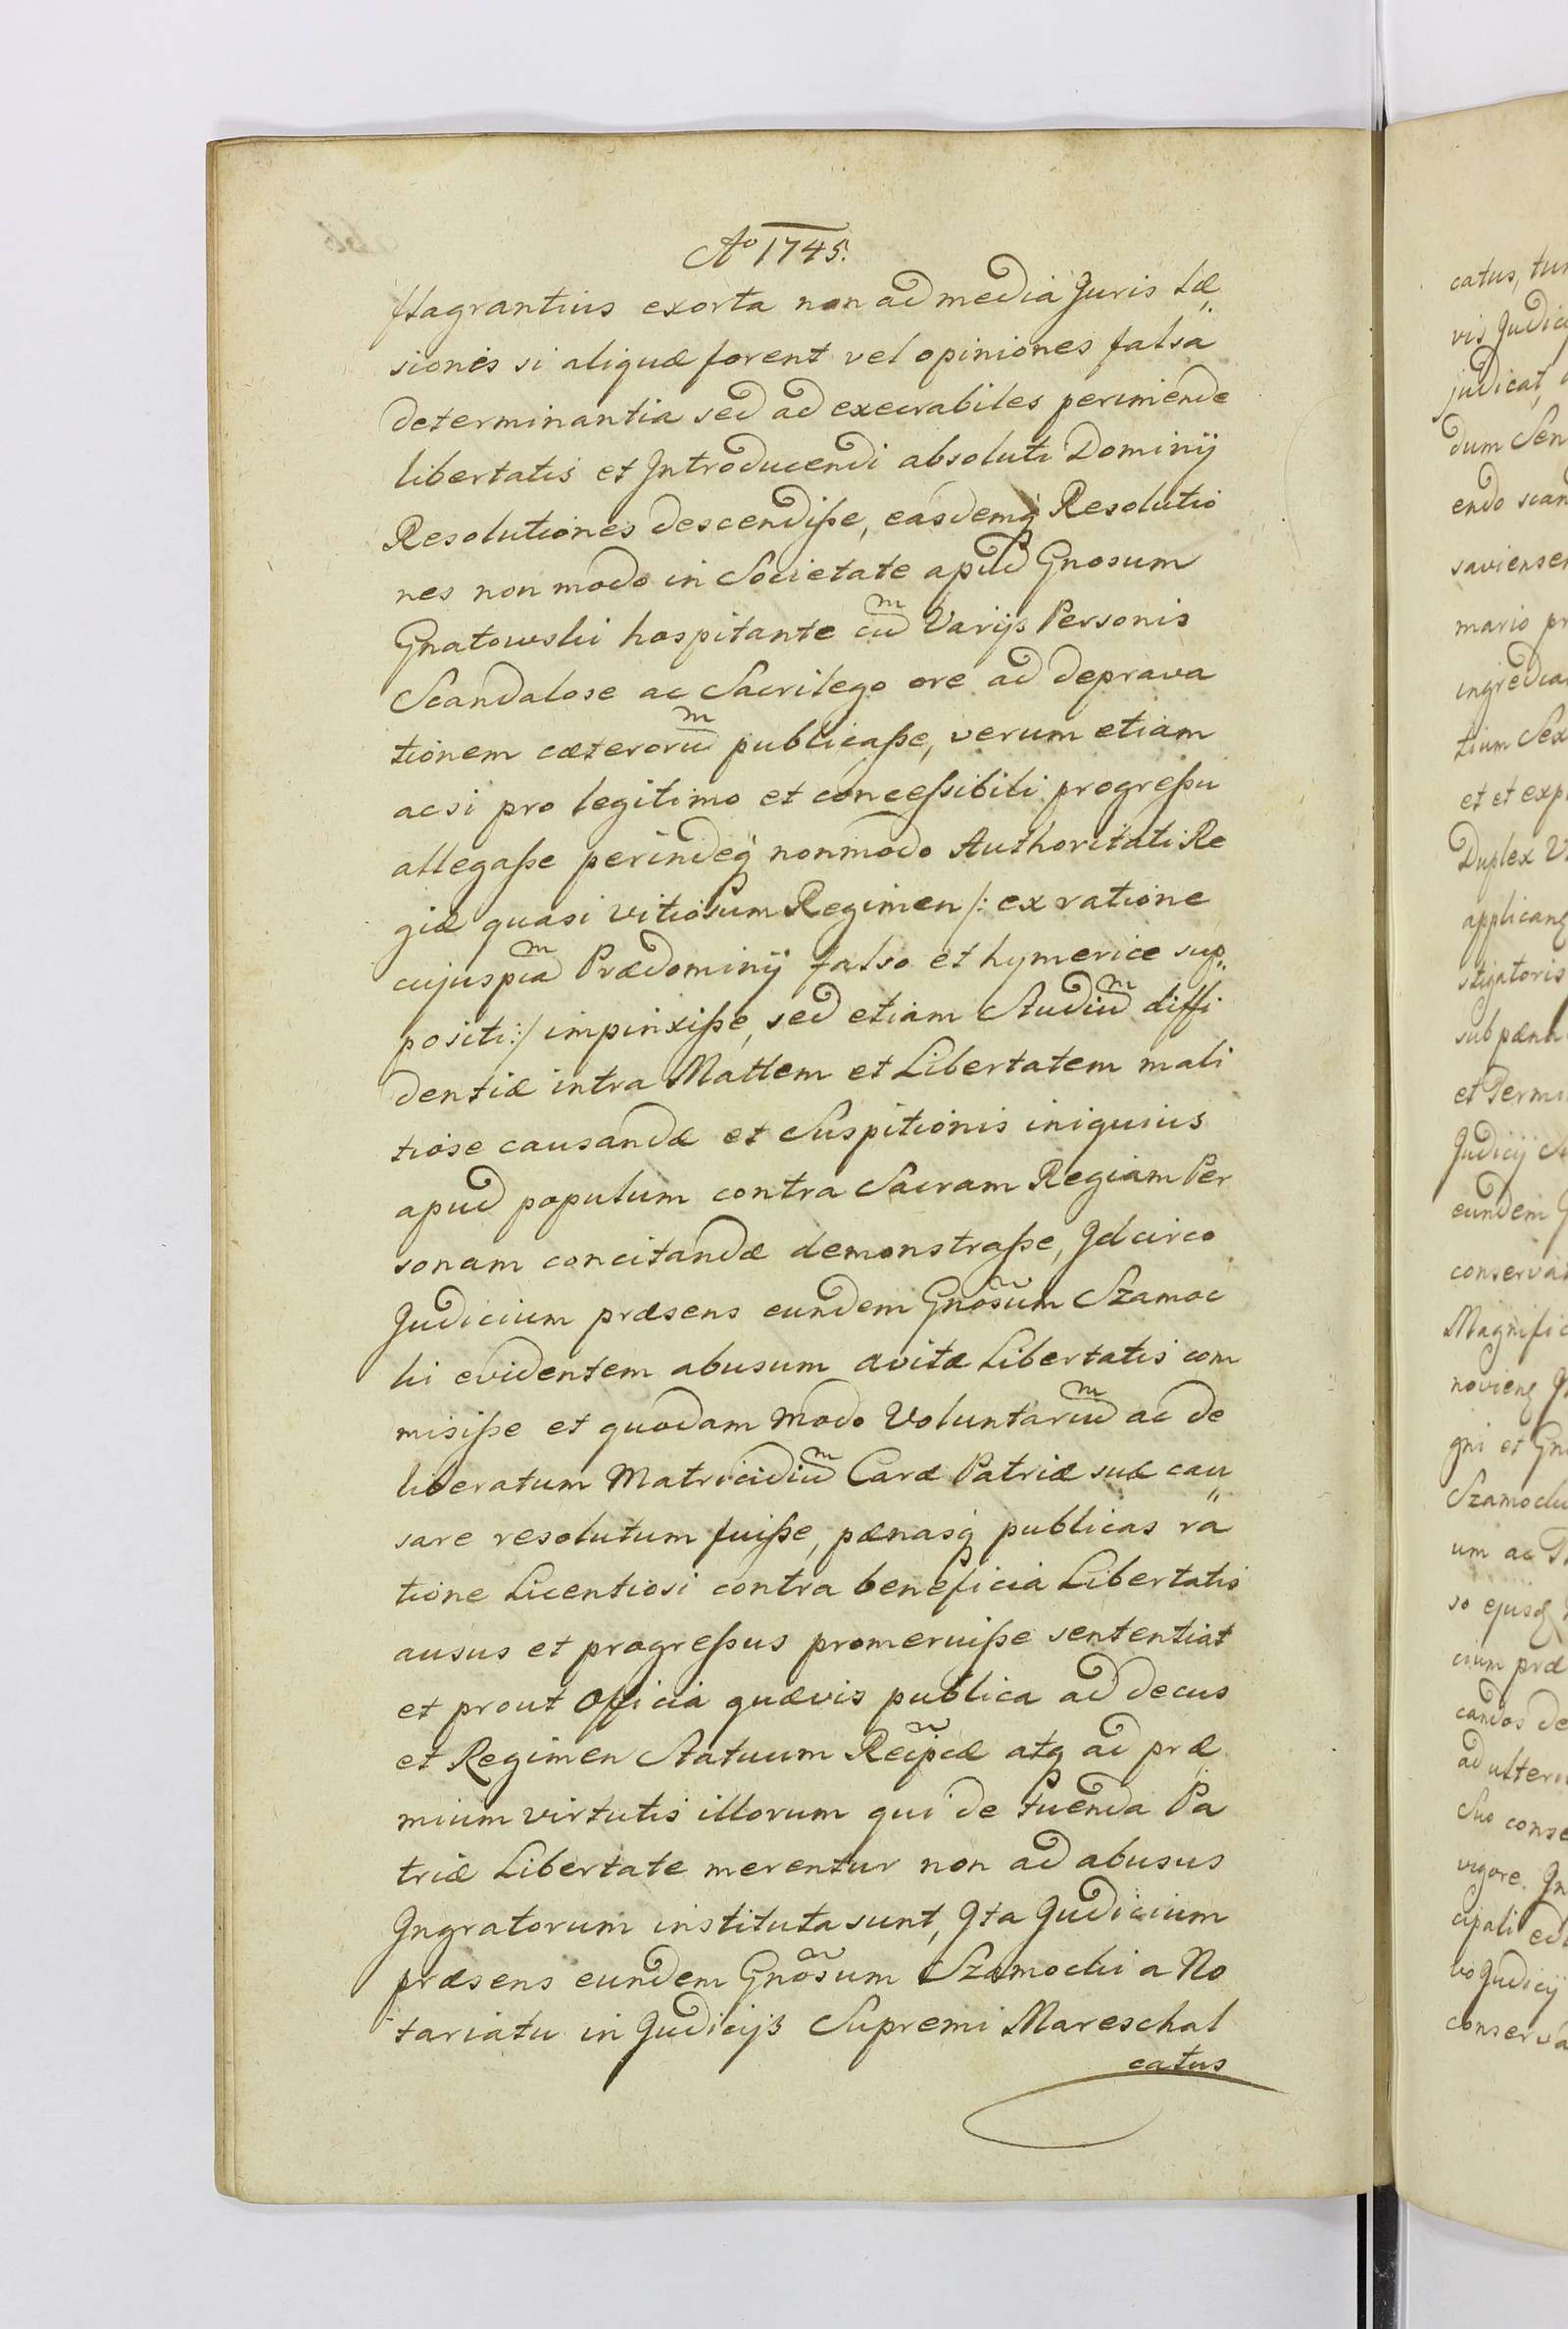 Ao 1745.
flagrantius exorta non ad media Juris Læ„
sionis si aliquæ forent vel opiniones falsa
determinantia sed ad execrabiles perimende
libertatis et Introducendi absoluti Dominij
Resolutiones descendiſse, easdemq Resolutio
nes non modo in Societate apud Gnosum
Gnatowski hospitante cum Varijs Personis
Scandalose ac Sacrilego ore ad deprava
tionem cæterorum publicaſse, verum etiam
acsi pro legitimo et conceſsibili progreſsu
allegaſse perindeq nonmodo Authoritati Re
giæ quasi vitiosum Regimen /: ex ratione
cujuspiam Prædominij falso et hymerice sup„
positi :/ impinxiſse, sed etiam Studium diffi
dentiæ intra Mattem et Libertatem mali
tiose causandæ et Suspitionis iniquius
apud populum contra Sacram Regiam Per
sonam concitandæ demonstraſse, Idcirco
Judicium præsens eundem Gnõsum Szamoc
ki evidentem abusum avitæ Libertatis com
misiſse et quodam modo Voluntarium ac de
liberatum Matricidium Caræ Patriæ suæ cau„
sare resolutum fuiſse, pænasq publicas ra
tione Licentiosi contra beneficia Libertatis
ausus et progreſsus promeruiſse sententiat
et prout Officia quævis publica ad decus
et Regimen Statuum Reipcæ atq ad præ„
mium virtutis illorum qui de tuenda Pa
triæ Libertate merentur non ad abusus
Ingratorum instituta sunt, Ita Judicium
præsens eundem Gnõsum Szamocki a No
tariatu in Judicijs Supremi Mareschal
catus
catus, tum
vis Judic
judicat,
dum Sen
endo scan
saviensem
mario pr
ingredia
tium Sex
et et exp
Duplex
applicanq
stigatoris
sub pæna
et Termi
Judicij
eundem
conserva
Magnific
novienq
gni et Gn
Szamocki
um ac
so ejusq
cium præ
candos de
ad ulteri
Suo conse
vigore. In
cipali
vo Judicij
conserva